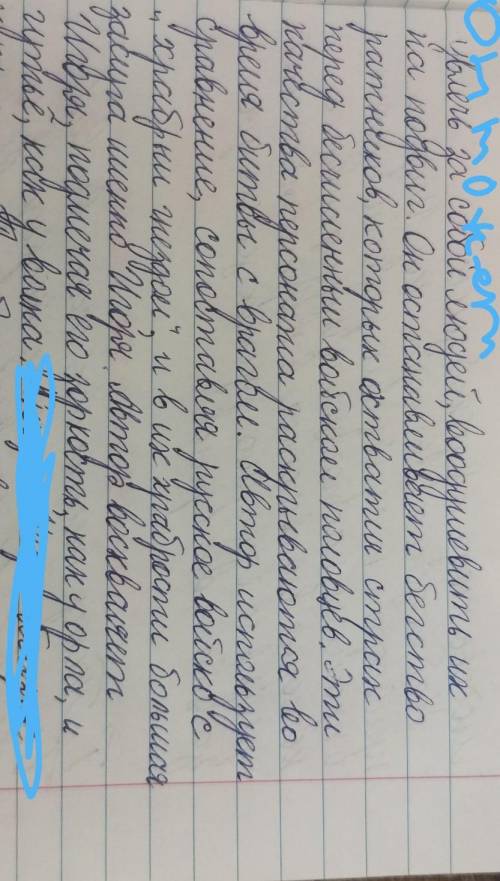 Он может
увлечь за собой людей, воодушевить их
на подвиг. Он останавливает бегство
ратников, которых охватил страх
перед бесчисленным войском половцев. Эти
качества персонажа раскрываются во
время битвы с врагом. Автор использует
сравнение, сопоставляя русское войско с
"храбрым гнездом", и в их храбрости большая
заслуга именно Игоря. Автор восхваляет
Игоря, подмечая его зоркость, как у орла, и
чутьё, как у волка.